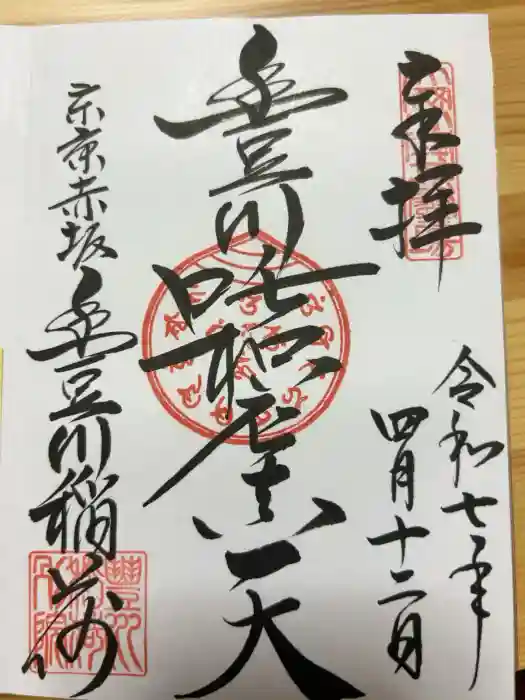 奉拝
令和七年
四月十二日
豊川吒枳尼真天
東京赤坂
豊川稲荷